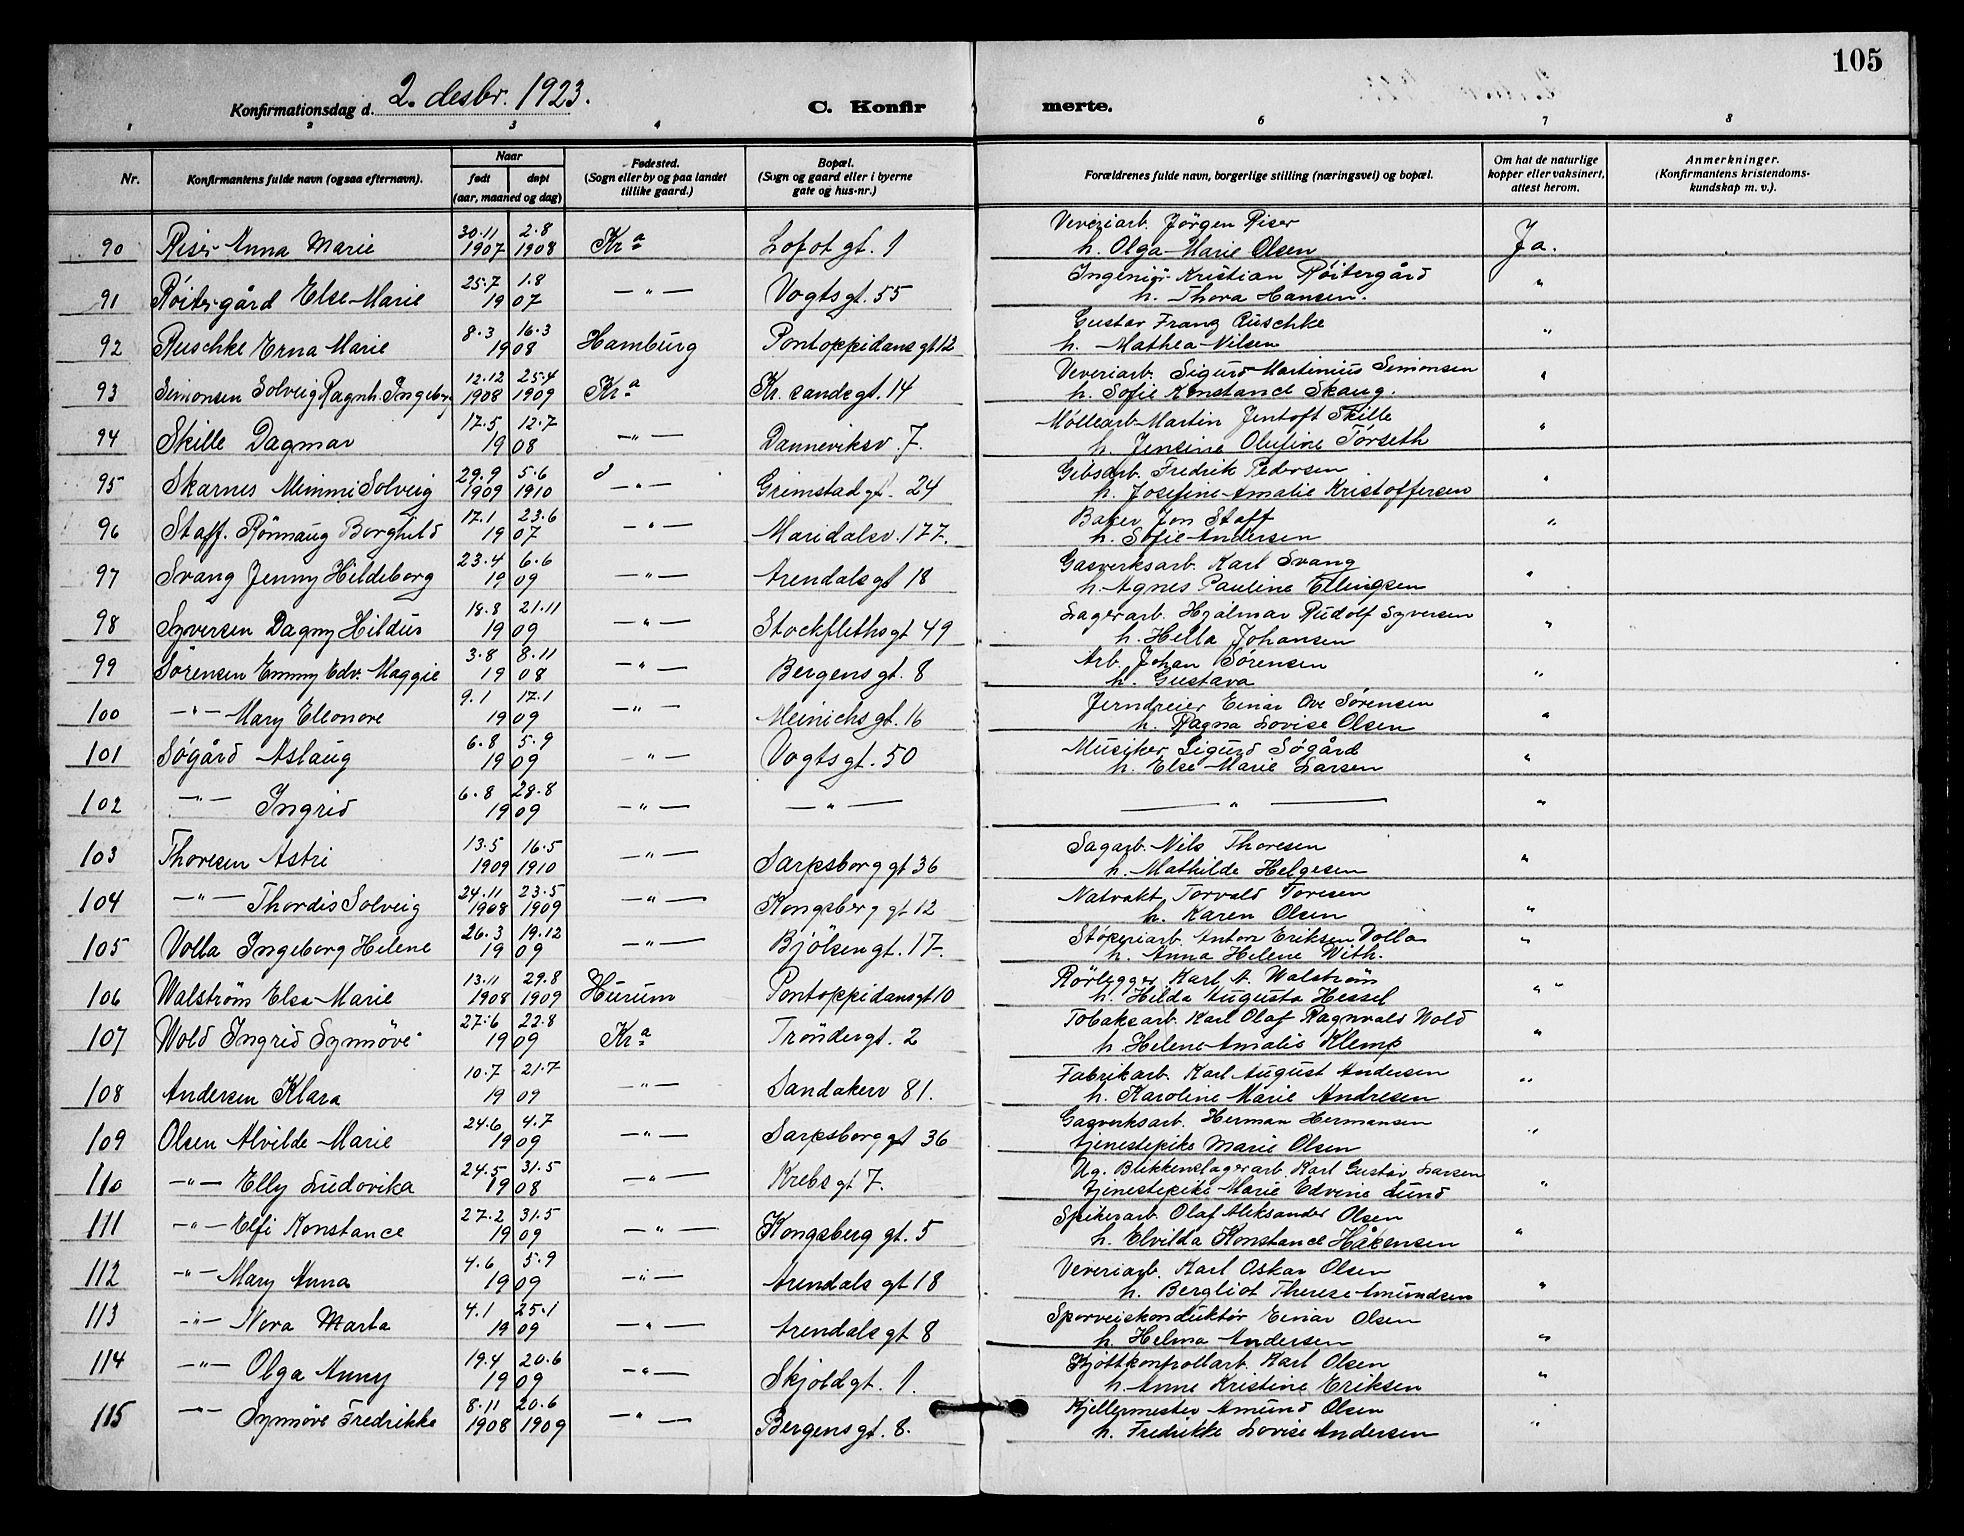 105
Konfirmationsdag d. 2. desbr. 1923.
C. Konfir
merte.
1 2 3 4 6 7 8
Nr.
Konfirmantens fulde navn (ogsaa efternavn).
Naar
født
døpt
(aar, maaned og dag)
Fødested.
(Sogn eller by og paa landet
tillike gaard.)
Bopæl.
(Sogn og gaard eller i byerne
gate og hus-nr.)
Forældrenes fulde navn, borgerlige stilling (næringsvei) og bopæl.
Om hat de naturlige
kopper eller vaksinert,
attest herom.
Anmerkninger.
(Konfirmantens kristendoms-
kundskap m. v.).
30.11 2.8 Veveriarb. Jörgen Riser
90 Riser Anna Marie 1907 1908 Kra Lofotgt. 1 h. Olga Marie Olsen Ja.
25.7 1.8 Ingeniör Kristian Röitergård
91 Röitergård Else Marie 1907 —"— Vogtsgt. 55 h. Thora Hansen. "
8.3 16.3 Gustav Franz Ruschke
92 Ruschke Erna Marie 1908 Hamburg Pontoppidansgt 12 h. Mathea Nilsen "
12.12 25.4 Veveriarb. Sigurd Martinius Simonsen
93 Simonsen Solveig Ragnh. Ingeborg 1908 1909 Kra Kr.sandsgt. 14 h. Sofie Konstance Skaug. "
17.5 12.7 Möllearb. Martin Jentoft Skille
94 Skille Dagmar 1908 —"— Danneviksv. 7. h. Jensine Olufine Torseth "
29.9 5.6 Gibsarb. Fredrik Pedersen
95 Skarnes Mimmi Solveig 1909 1910 —"— Grimstadgt. 24 h. Josefine Amalie Kristoffersen "
17.1 23.6 Baker Jon Staff
96 Staff. Rönnaug Borghild 1907 —"— Maridalsv. 177. h. Sofie Andersen "
23.4 6.6 Gasverksarb. Karl Svang
97 Svang Jenny Hildeborg 1909 —"— Arendalsgt 18 h. Agnes Pauline Ellingsen "
18.8 21.11 Lagerarb. Hjalmar Rudolf Syversen
98 Syversen Dagny Hildur 1909 —"— Stockflethsgt 49 h. Hella Johansen "
3.8 8.11 Arb. Johan Sörensen
99 Sörensen Emmy Edv. Maggie 1908 —"— Bergensgt. 8 h. Gustava "
9.1 17.1 Jerndreier Einar Ove Sörensen
100 —"— Mary Eleonore 1909 —"— Meinichsgt. 16 h. Ragna Lovise Olsen "
6.8 5.9 Musiker Sigurd Søgård
101 Søgård Aslaug 1909 —"— Vogtsgt. 50 h. Else Marie Larsen "
6.8 28.8
102 —"— Ingrid 1909 —"— —"— —"— "
13.5 16.5 Sagarb. Nils Thoresen
103 Thoresen Astri 1909 1910 —"— Sarpsborggt 36 h. Mathilde Helgesen "
24.11 23.5 Natvakt Torvald Toresen
104 —"— Thordis Solveig 1908 1909 —"— Kongsberg gt 12 h. Karen Olsen "
26.3 19.12 Støperiarb. Anton Eriksen Volla
105 Volla Ingeborg Helene 1909 —"— Bjölsengt. 17. h. Anna Helene With. "
13.11 29.8 Rörlegger Karl A. Walström
106 Walström Elsa Marie 1908 1909 Hurum Pontoppidansgt 10 h. Hilda Augusta Hessel "
27.6 22.8 Tobaksarb. Karl Olaf Ragnvald Wold
107 Wold Ingrid Synnöve 1909 Kra Tröndergt. 2 h. Helene Amalie Klemp "
10.7 21.7 Fabrikarb. Karl August Andersen
108 Andersen Klara 1909 —"— Sandakerv 81. h. Karoline Marie Andresen "
24.6 4.7 Gasverksarb. Herman Hermansen
109 Olsen Alvilde Marie 1909 —"— Sarpsborggt 36 tjenestepike Marie Olsen "
24.5 31.5 Ug. Blikkenslagerarb. Karl Gustav Larsen
110 —"— Elly Ludovika 1908 —"— Krebsgt 7. tjenestepike Marie Edvine Lund "
27.2 31.5 Spikerarb. Olaf Aleksander Olsen
111 —"— Elfi Konstance 1909 —"— Kongsberg gt. 5 h. Elvilda Konstance Håkensen "
4.6 5.9 Veveriarb. Karl Oskar Olsen
112 —"— Mary Anna 1909 —"— Arendals gt 18 h. Bergliot Therese Amundsen "
4.1 25.1 Sporveiskonduktör Einar Olsen
113 —"— Nora Marta 1909 —"— Arendalsgt 8 h. Helma Andersen "
19.4 20.6 Kjøttkontrollarb. Karl Olsen
114 —"— Olga Anny 1909 —"— Skjoldgt. 1. h. Anne Kristine Eriksen "
8.11 20.6 Kjellermester Amund Olsen
115 —"— Synnöve Fredrikke 1908 1909 —"— Bergensgt. 8. h. Fredrikke Lovise Andersen "